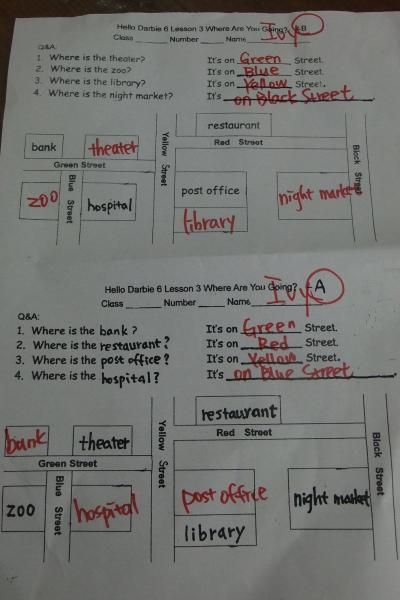 Hello Darbie 6 Lesson 3 Where Are You Going? -B
Class ____ Number ____ Name Ivy
Q&A:
1. Where is the theater? It's on Green Street.
2. Where is the zoo? It's on Blue Street.
3. Where is the library? It's on Yellow Street.
4. Where is the night market? It's on Black Street.
restaurant
bank theater Yellow Street Red Street Black Street
Green Street
zoo Blue Street hospital post office night market
library
Hello Darbie 6 Lesson 3 Where Are You Going? -A
Class ____ Number ____ Name Ivy
Q&A:
1. Where is the bank? It's on Green Street.
2. Where is the restaurant? It's on Red Street.
3. Where is the post office? It's on Yellow Street.
4. Where is the hospital? It's on Blue Street.
restaurant
bank theater Yellow Street Red Street Black Street
Green Street
zoo Blue Street hospital post office night market
library